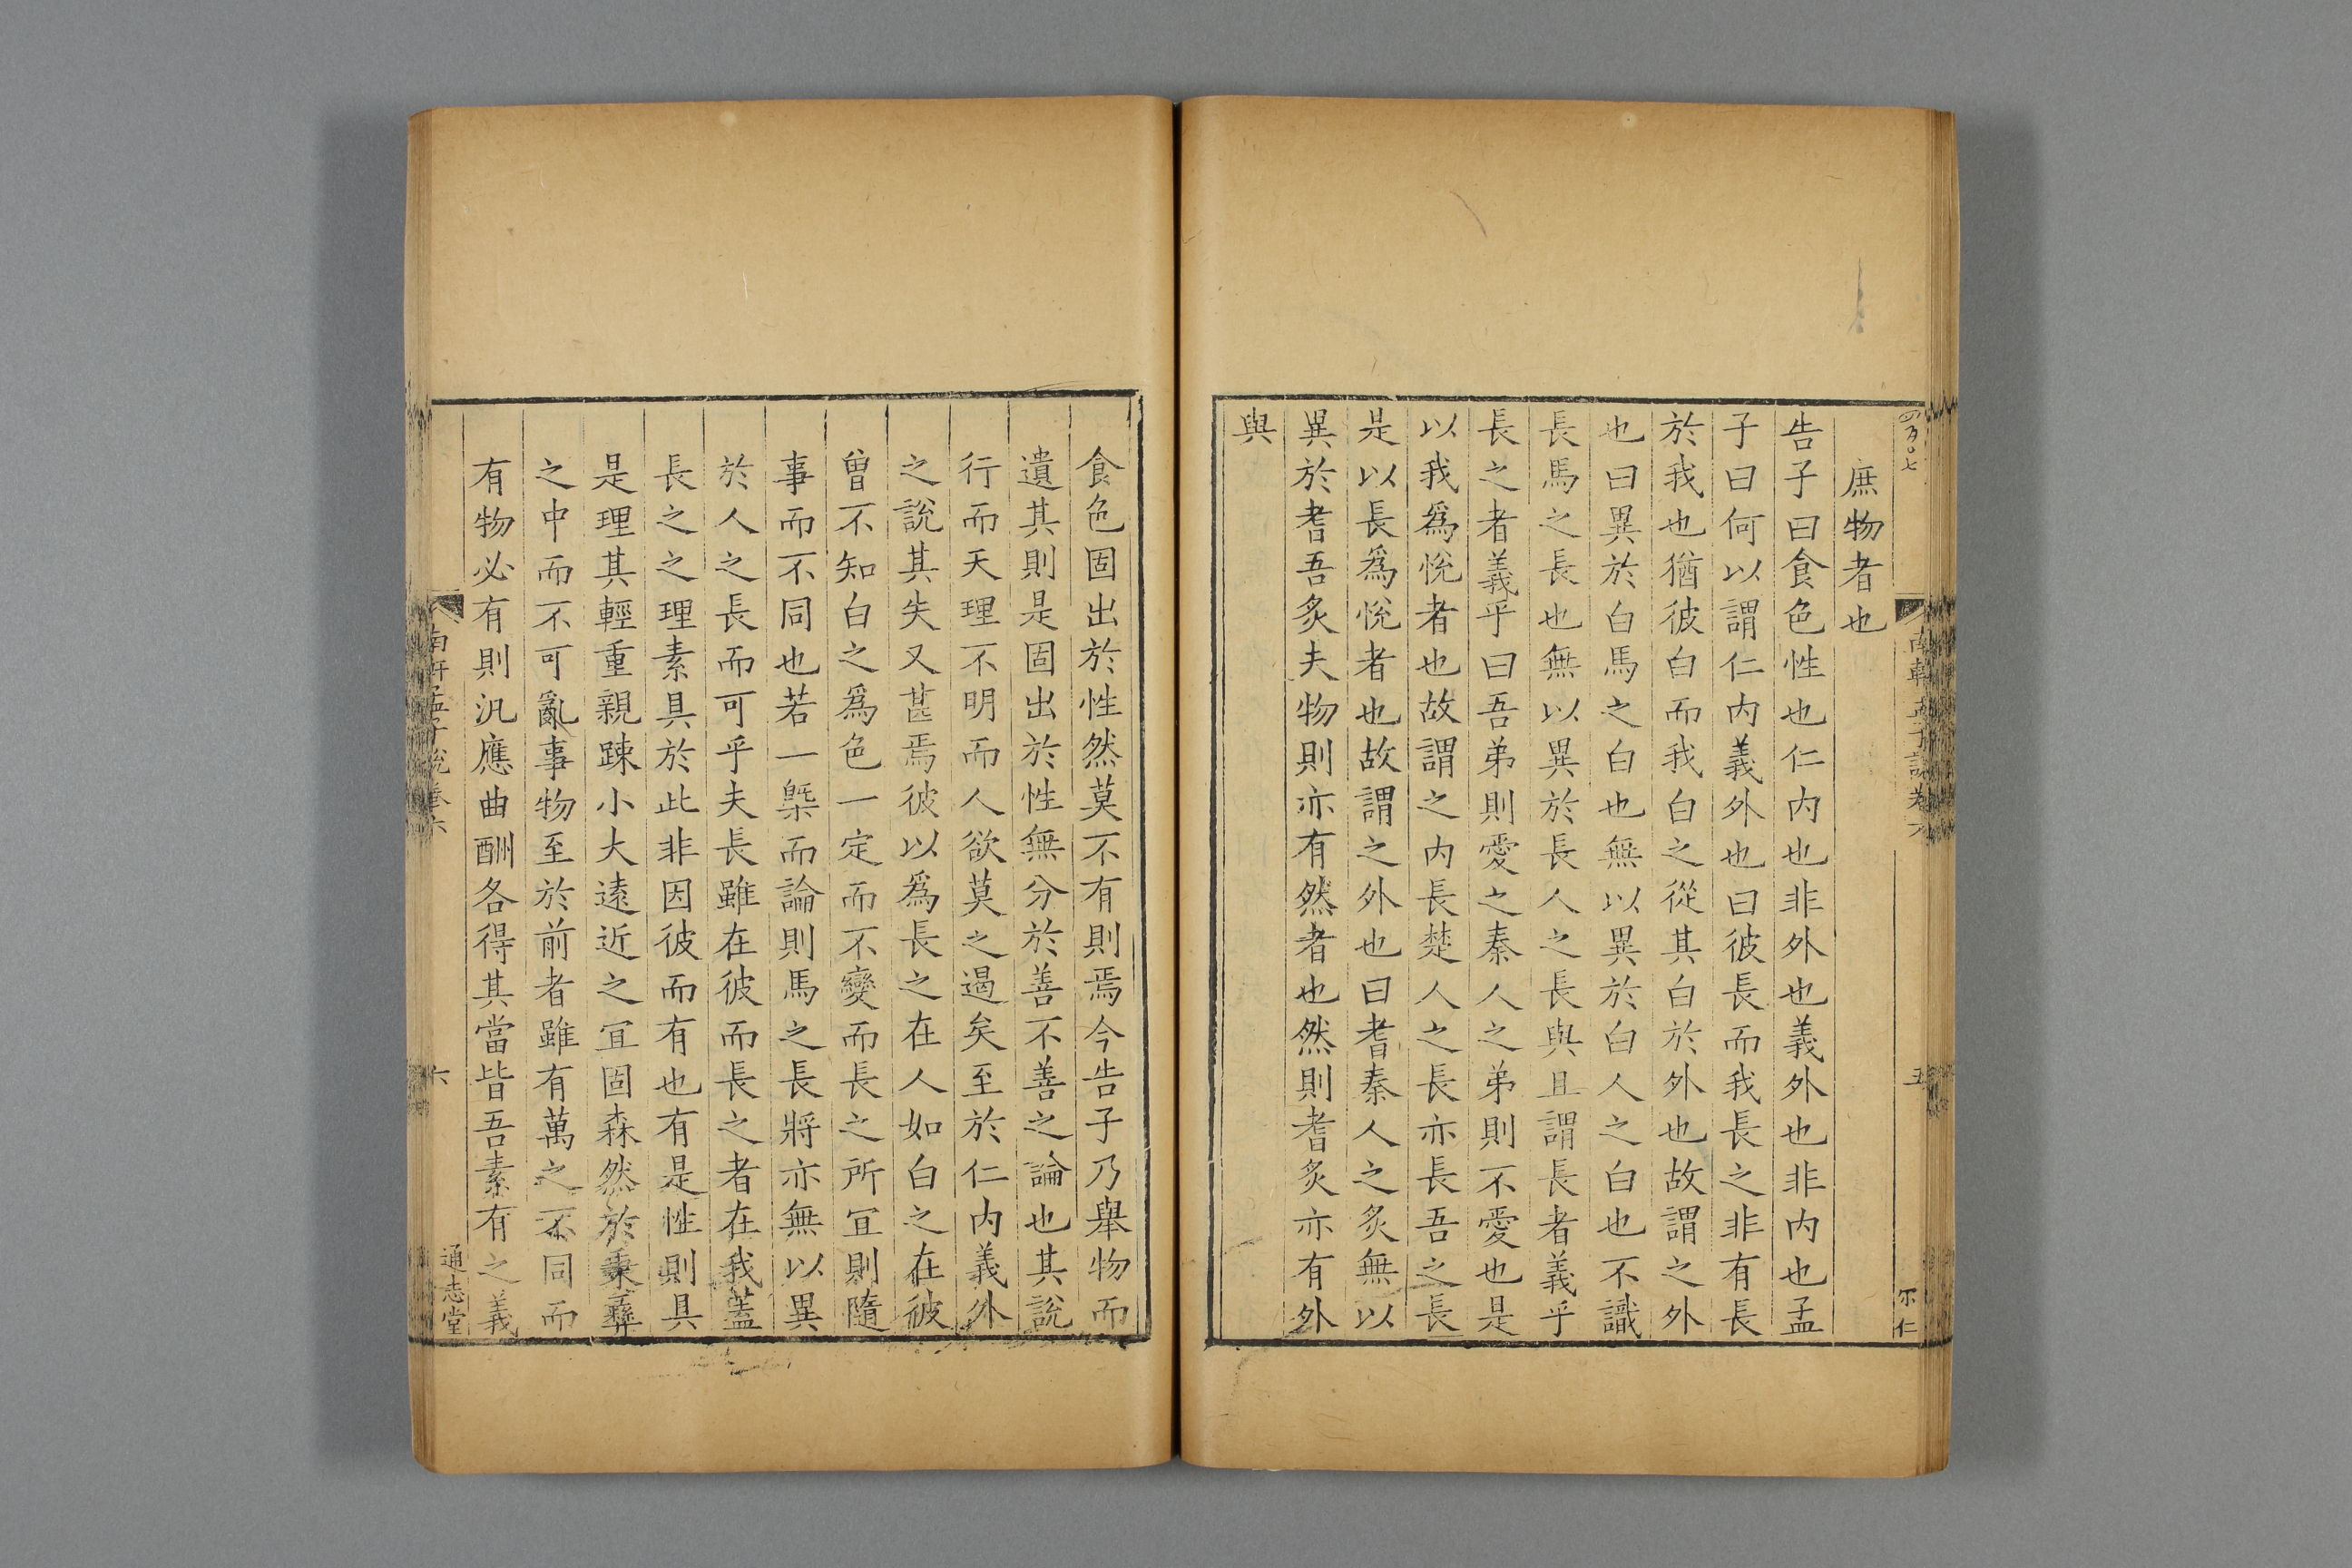 庶物者也
告子曰食色性也仁内也非外也義外也非内也孟
子曰何以謂仁内義外也曰彼長而我長之非有長
於我也猶彼白而我白之從其白於外也故謂之外
也曰異於白馬之白也無以異於白人之白也不識
長馬之長也無以異於長人之長與且謂長者義乎
長之者義乎曰吾弟則愛之秦人之弟則不愛也是
以我爲悅者也故謂之内長楚人之長亦長吾之長
是以長爲悅者也故謂之外也曰耆秦人之炙無以
異於耆吾炙夫物則亦有然者也然則耆炙亦有外
與
南軒孟子說卷六
五
食色固出於性然莫不有則焉今告子乃舉物而
遺其則是固出於性無分於善不善之論也其說
行而天理不明而人欲莫之遏矣至於仁内義外
之說其失又甚焉彼以爲長之在人如白之在彼
曾不知白之爲色一定而不變而長之所冝則隨
事而不同也若一槩而論則馬之長將亦無以異
於人之長而可乎夫長雖在彼而長之者在我蓋
長之之理素具於此非因彼而有也有是性則具
是理其輕重親踈小大遠近之冝固森然於秉彞
之中而不可亂事物至於前者雖有萬之不同而
有物必有則汎應曲酬各得其當皆吾素有之義
南軒孟子說卷六
六
通志堂